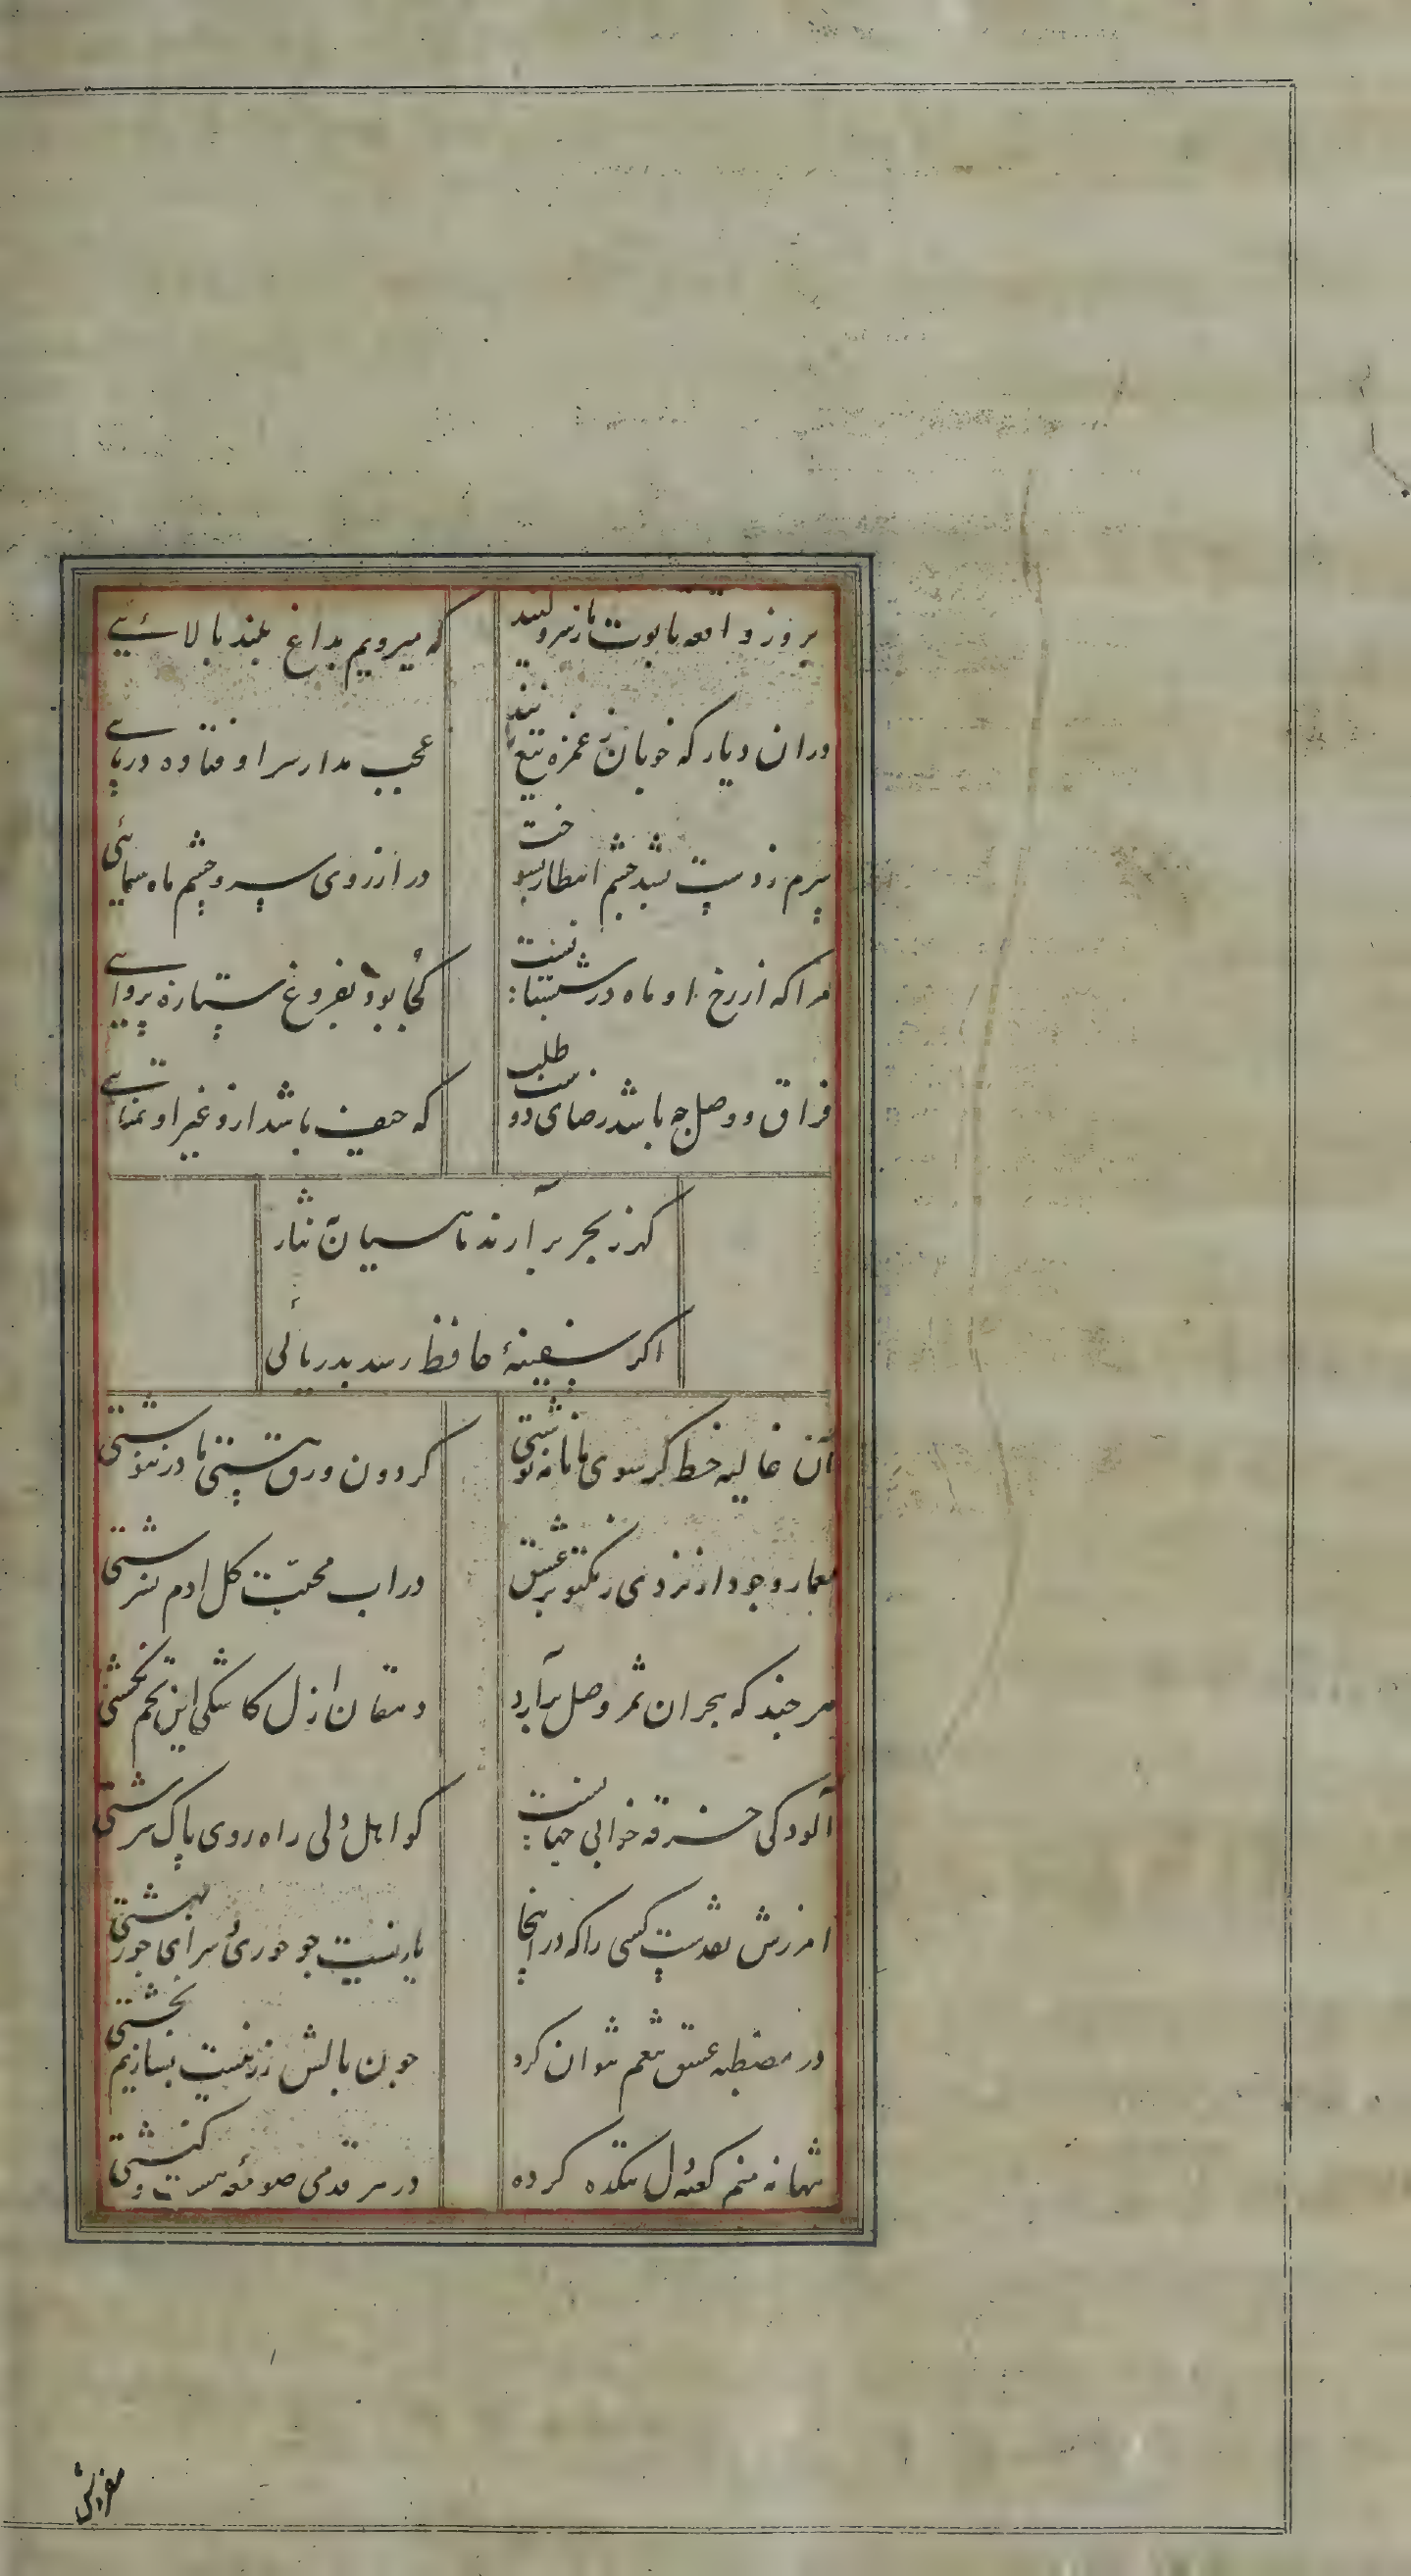 بروز واقعه تابوت ما ز سرو کنید
که میرویم بداغ بلند بالائی
دران دیار که خوبان ز غمزه تیغ زنند
عجب مدار سر اوفتاده در پای
سرم ز دست بشد چشم انتظار بسوخت
در ارزوی سر و چشم ماه سیمائی
مرا که از رخ او ماه در شبستانست
کجا بود بفروغ ستاره پروای
فراق و وصل چه باشد رضای دوست طلب
که حیف باشد ازو غیر او تمنای
گهر ز بحر برآرند ماهیان نثار
اکر سفینهٔ حافظ رسد بدریائی
آن غالیه خط کر سوی ما نامه نوشتی
کردون ورق هستی ما در ننوشتی
در اب محبت کل ادم نسرشتی
هر چند که هجران ثمر وصل برآرد
دهقان ازل کاشکی این تخم نکشتی
آلودکی خرقه خرابی جهانست
کو اهل دلی راه روی پاک سرشتی
امرزش نقدست کسی را که در اینجا
یاریست جو حوری و سرای جو بهشتی
در مصطبه عشق تنعم نتوان کرد
جون بالش زر نیست بسازیم بخشتی
تنها نه منم کعبه دل بتکده کرده
در هر قدمی صومعه هست و کنشتی